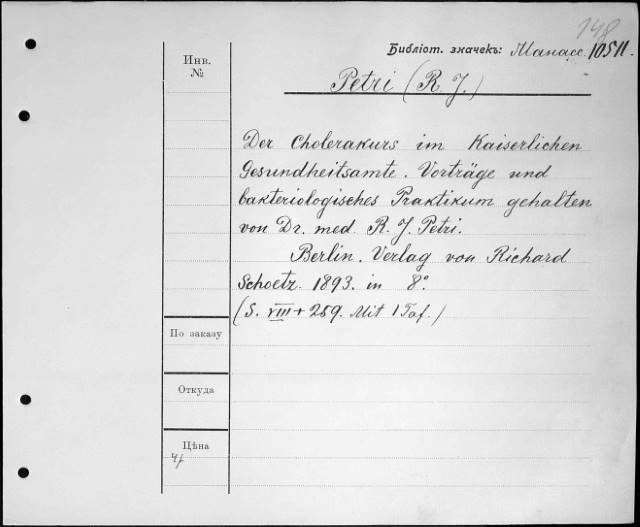 148
Инв. №
Библіот. значекъ: Манасс. 10511.
Petri (R. J.)
Der Cholerakurs im Kaiserlichen
Gesundheitsamte. Vorträge und
bakteriologisches Praktikum gehalten
von Dr. med. R. J. Petri.
Berlin. Verlag von Richard
Schoetz. 1893. in 8°.
(S. VIII + 259. Mit 1 Taf.)
По заказу
Откуда
Цѣна